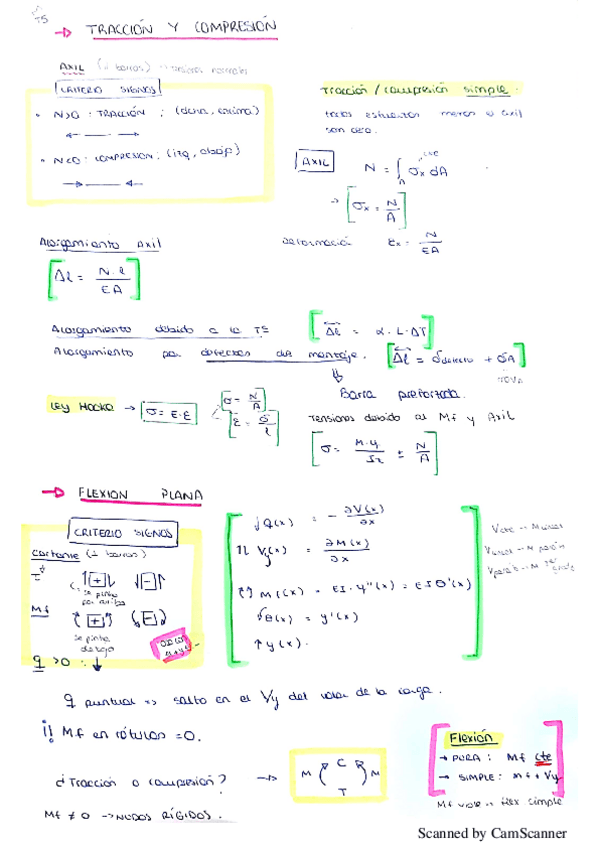 T5
→ TRACCIÓN Y COMPRESIÓN
AXIL (⊥ barras) → tensiones normales
CRITERIO SIGNOS
• N>0 : TRACCIÓN ; (dcha, encima)
• N<0 : COMPRESIÓN ; (izq, abajo)
Tracción / compresión simple.
todos esfuerzos menos el axil
son cero.
AXIL
N = ∫A σx dA
cte
→ [σx = N/A]
Alargamiento Axil
Deformación εx = N/EA
[Δl = N·l/EA]
Alargamiento debido a la Tª [Δl = α · L · ΔT]
Alargamiento por defectos de montaje. [Δl = δdefecto + δA]
Barra pretensada.
Ley Hooke → σ = E·ε
[σ = N/A]
[ε = δ/l]
Tensiones debido al Mf y Axil
[σ = M·y/Iz ± N/A]
→ FLEXION PLANA
CRITERIO SIGNOS
Cortante (⊥ barras)
se pinta
por arriba
Mf
se pinta
debajo
q >0 : ↓
↓q(x) = - ∂V(x)/∂x
↑↓ Vy(x) = ∂M(x)/∂x
Mf(x) = EI · y''(x) = EIθ'(x)
θ(x) = y'(x)
↑ y(x).
Vcte → M lineal
Vlineal → M parab
q puntual => salto en el Vy del valor de la carga.
¡¡ Mf en rótulas = 0.
Flexión
→ PURA : Mf cte
→ SIMPLE : Mf + Vy
¿Tracción o compresión? → M C M
T
Mf ≠ 0 → NUDOS RÍGIDOS.
Scanned by CamScanner